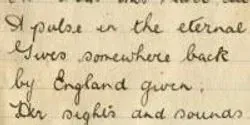 A pulse in the eternal
Gives somewhere back
by England given;
Her sights and sounds